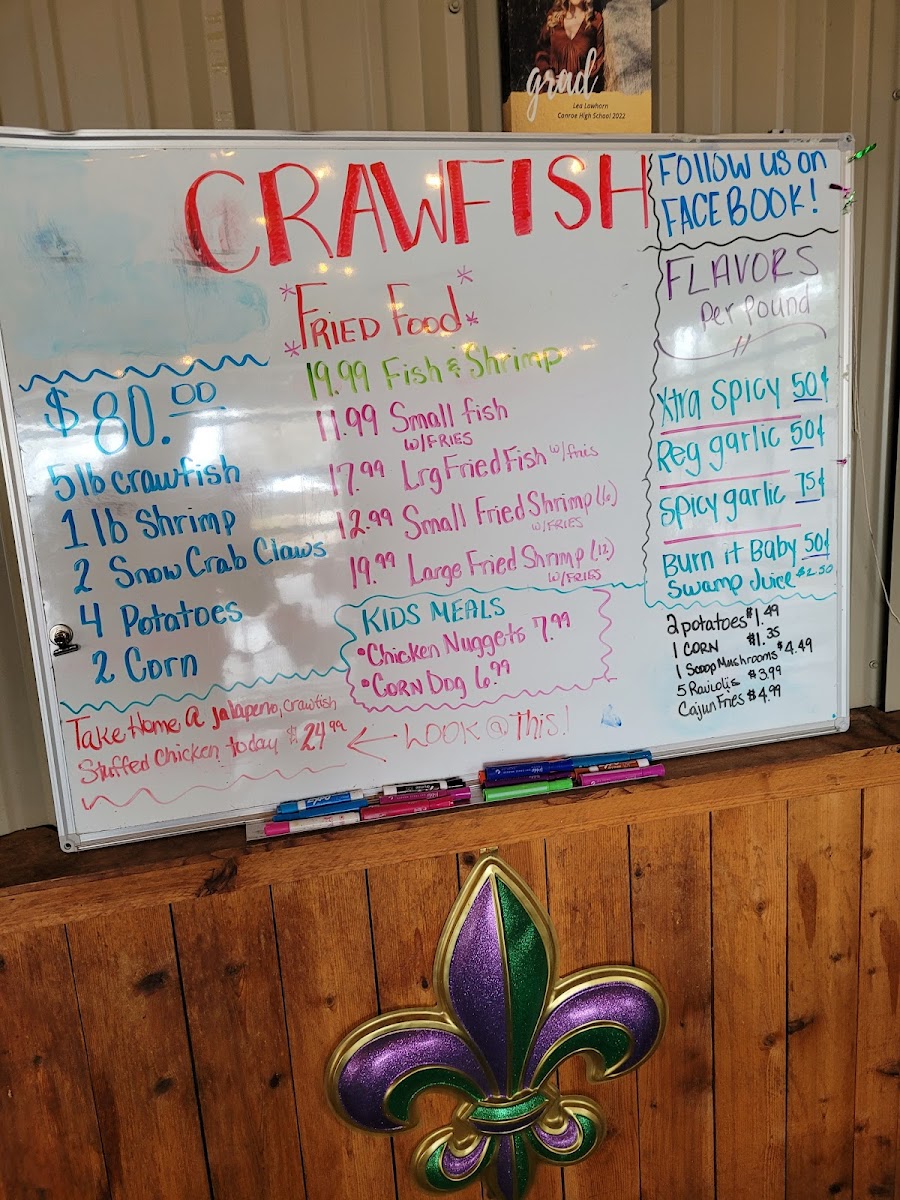 grad
Lea Lawhorn
Conroe High School 2022
CRAWFISH
FOLLOW US ON
FACEBOOK!
*FRIED FOOD*
$80.00
5 lb crawfish
1 lb Shrimp
2 Snow Crab Claws
4 Potatoes
2 Corn
19.99 Fish & Shrimp
11.99 Small fish
W/FRIES
17.99 Lrg Fried Fish w/fries
12.99 Small Fried Shrimp (6)
W/FRIES
19.99 Large Fried Shrimp (12)
W/FRIES
KIDS MEALS
•Chicken Nuggets 7.99
•Corn Dog 6.99
FLAVORS
Per Pound
Xtra Spicy 50¢
Reg garlic 50¢
Spicy garlic 75¢
Burn it Baby 50¢
Swamp Juice $2.50
2 potatoes $1.49
1 CORN $1.35
1 Scoop Mushrooms $4.49
5 Raviolis $3.99
Cajun Fries $4.99
Take Home a jalapeno, crawfish
Stuffed Chicken today $24.99
LOOK @ This!